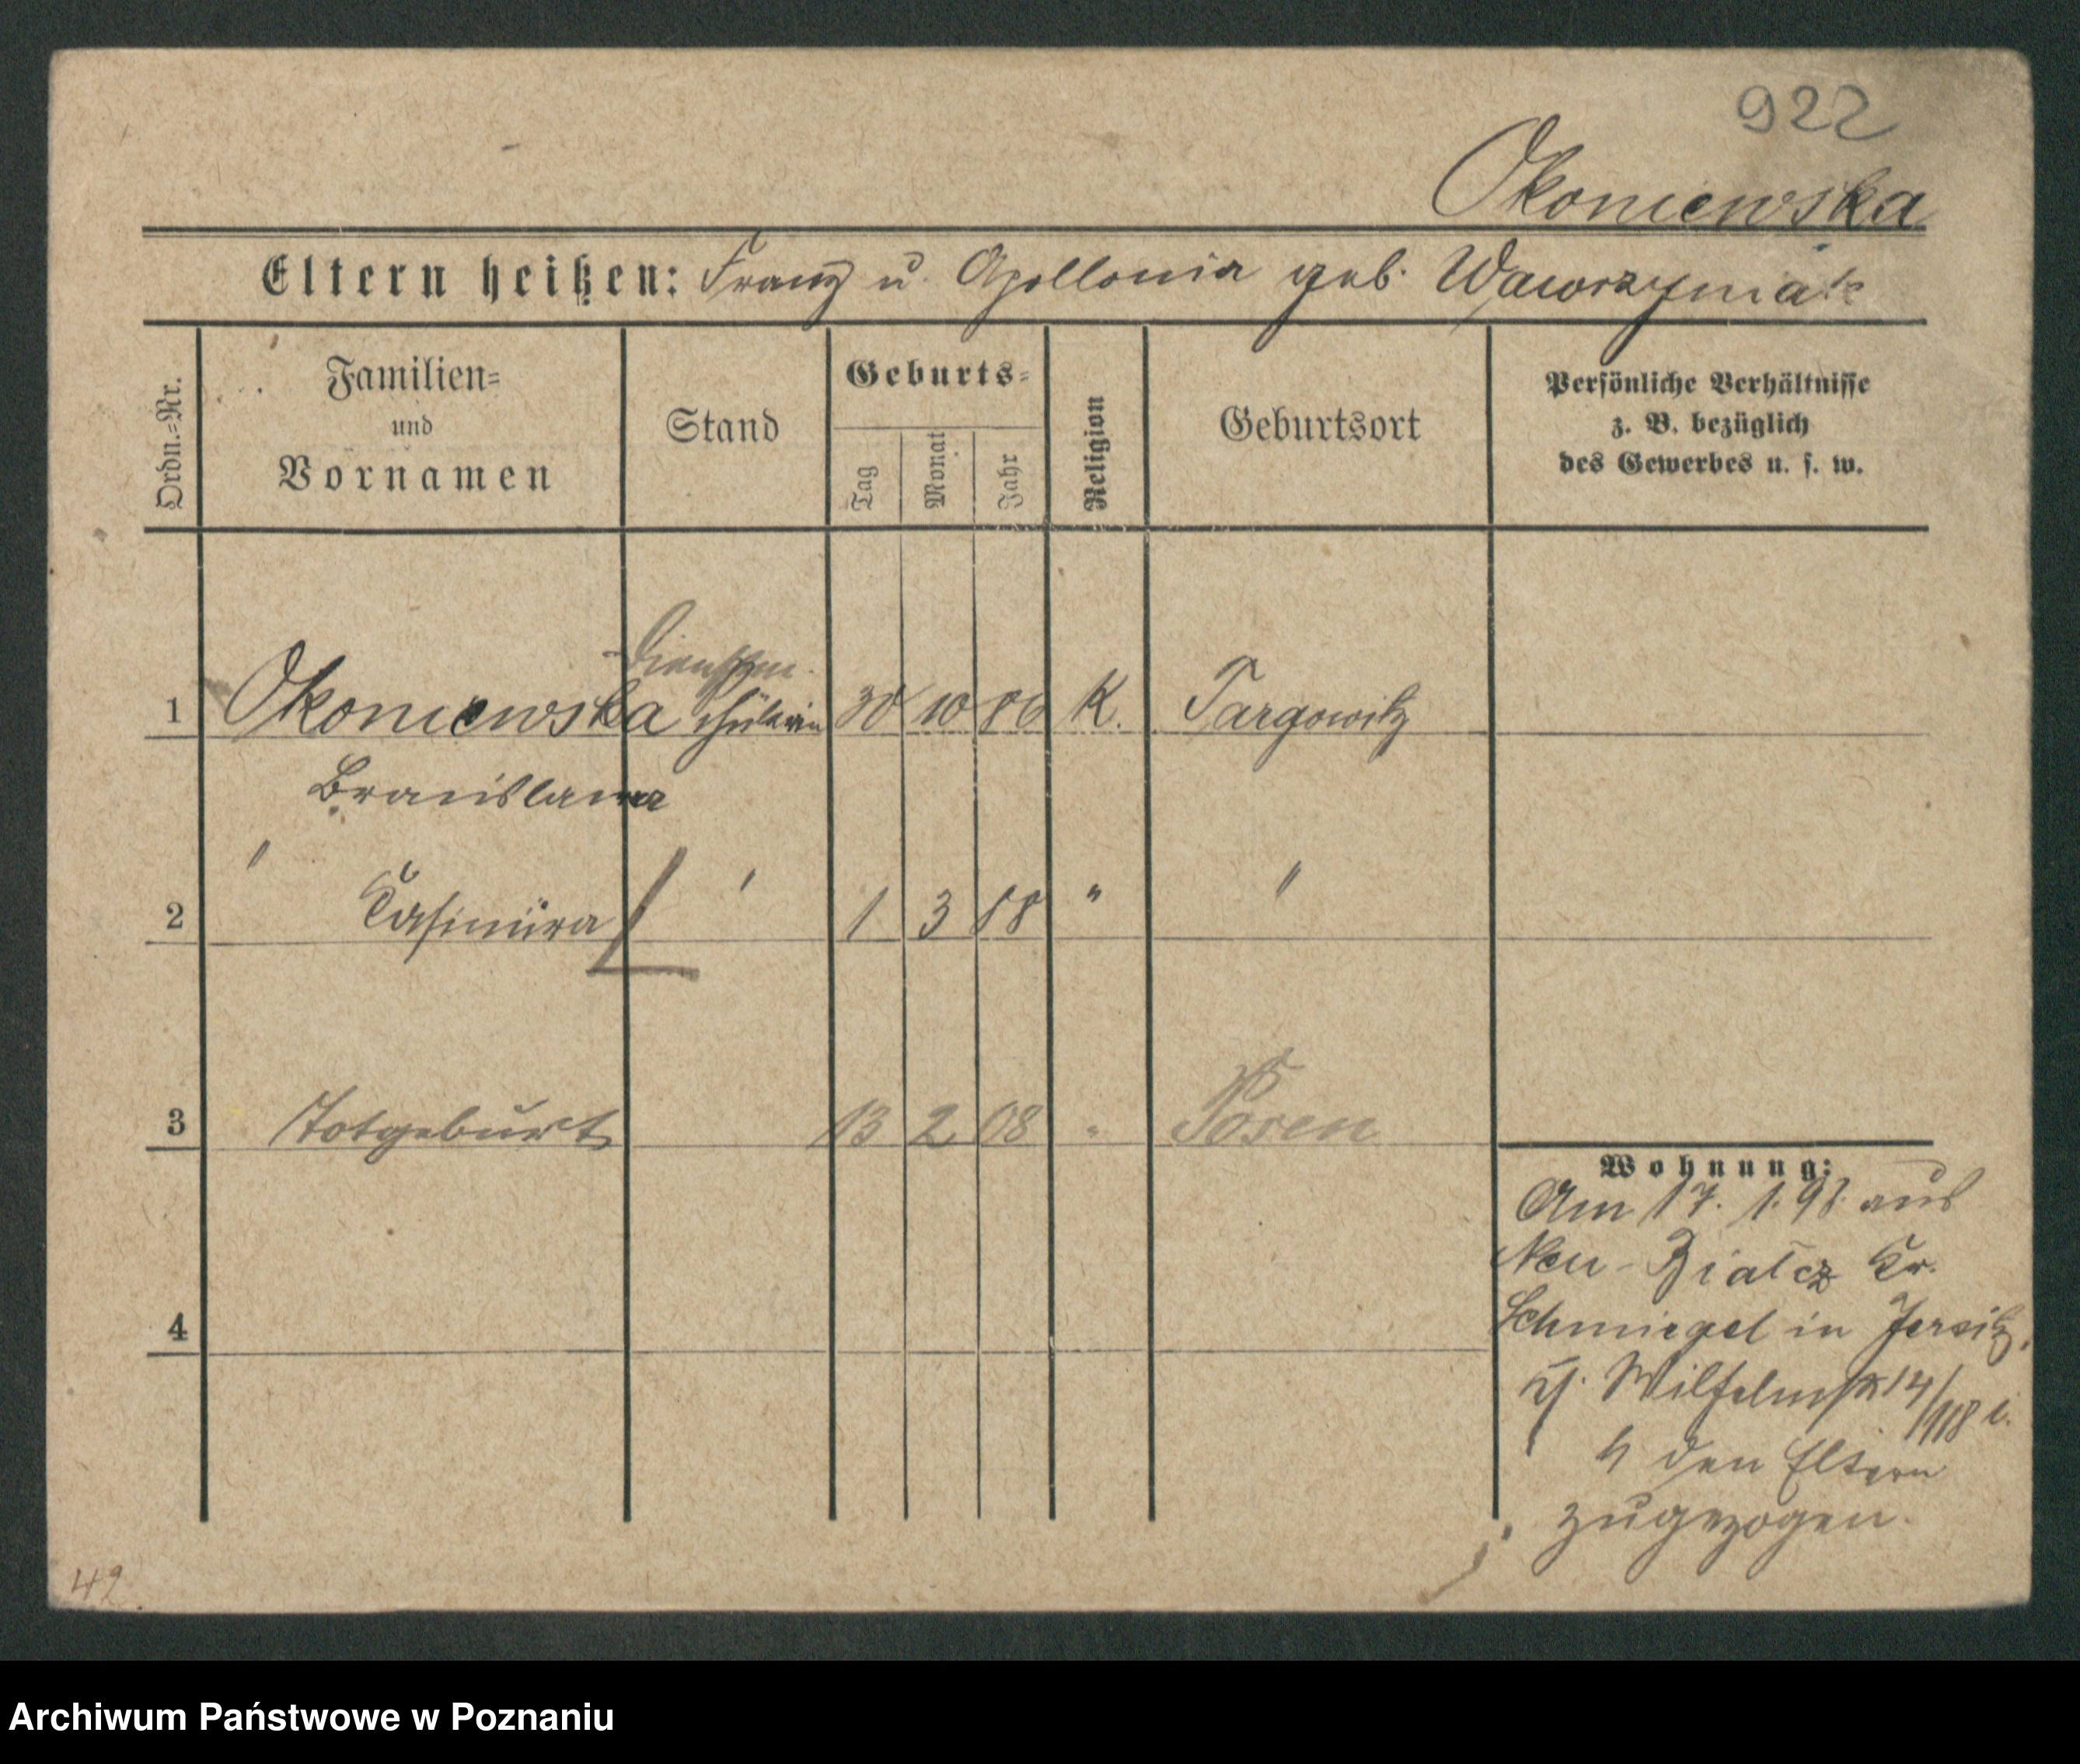 922
Okoniewska
Eltern heißen: Franz u. Apollonia geb. Wawrzyniak
Ordn.=Nr.
Familien=
und
Vornamen
Stand
Geburts=
Tag
Monat
Jahr
Religion
Geburtsort
Persönliche Verhältnisse
z. B. bezüglich
des Gewerbes u. s. w.
1 Okoniewska 30 10 86 K. Targowitz
Bronislawa
2 " Casimira " 1 3 88 " "
3 Totgeburt 13 2 08 " Posen
4
Wohnung:
Am 17. 1. 98. aus
Neu-Bialcz Kr.
Schmiegel in Jersitz,
Wilhelmstr 14/
den Eltern
zugezogen.
42.
Archiwum Państwowe w Poznaniu